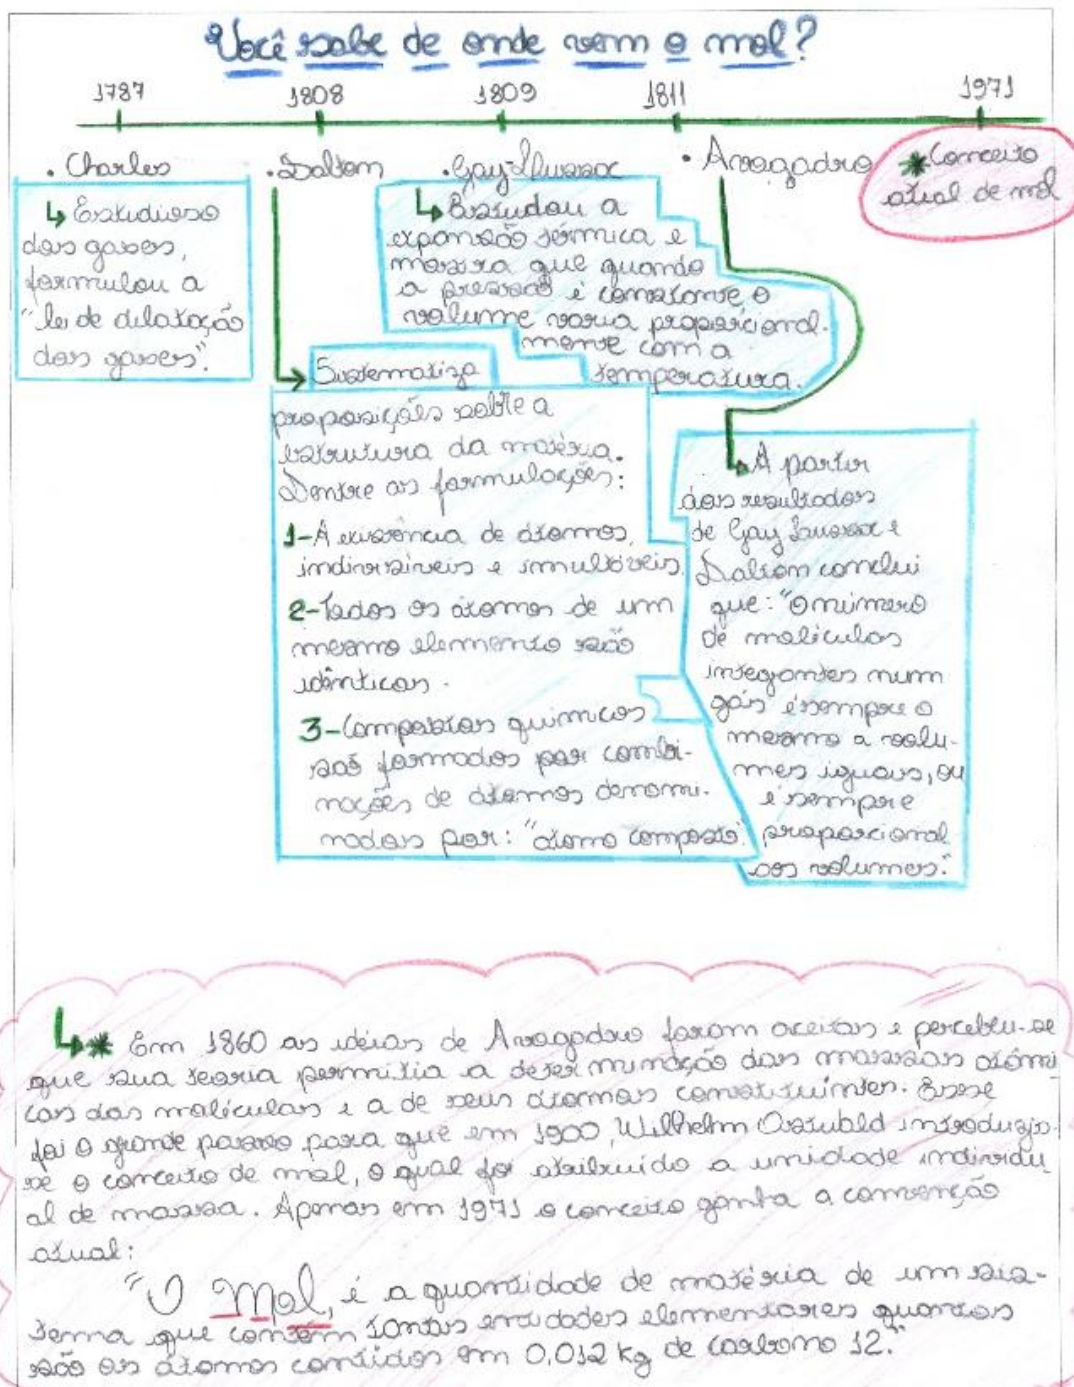 Você sabe de onde vem o mol?
1787
1808
1809
1811
1971
• Charles
↳ Estudioso
dos gases,
formulou a
"lei de dilatação
dos gases".
• Dalton
Sistematiza
proposições sobre a
estrutura da matéria.
Dentre as formulações:
1-A existência de átomos,
indivisíveis e imultáveis.
2-Todos os átomos de um
mesmo elemento são
idênticos.
3-Compostos químicos
são formados por combi-
nações de átomos denomi-
nados por: "átomo composto".
• Gay-Lussac
↳ Estudou a
expansão térmica e
mostra que quando
a pressão é constante, o
volume varia proporcional-
mente com a
temperatura.
• Avogadro
↳ A partir
dos resultados
de Gay Lussac e
Dalton conclui
que: "O número
de moléculas
integrantes num
gás é sempre o
mesmo a volu-
mes iguais, ou
é sempre
proporcional
aos volumes."
* Conceito
atual de mol
↳ * Em 1860 as idéias de Avogadro foram aceitas e percebeu-se
que sua teoria permitia a determinação das massas atômi
cas das moléculas e a de seus átomos constituintes. Esse
foi o grande passo para que em 1900, Wilhelm Ostwald introduzis-
se o conceito de mol, o qual foi atribuído a unidade individu
al de massa. Apenas em 1971 o conceito ganha a convenção
atual:
"O Mol, é a quantidade de matéria de um sis-
tema que contém tantas entidades elementares quantos
são os átomos contidos em 0,012 kg de carbono 12."